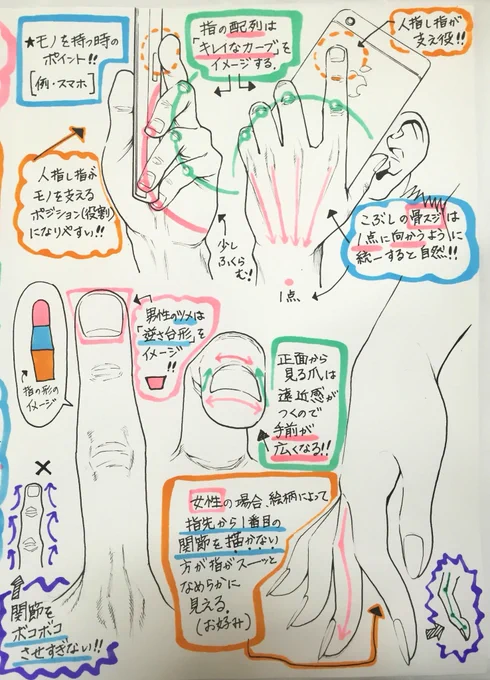 ★モノを持つ時の
ポイント!!
[例・スマホ]
指の配列は
「キレイなカーブ」を
イメージする。
人指し指が
支え役!!
人指し指が
モノを支える
ポジション(役割)
になりやすい!!
少し
ふくら
む!
こぶしの骨スジは
1点に向かうように
統一すると自然!!
1点
男性のツメは
「逆さ台形」を
イメージ
!!
指の形の
イメージ
正面から
見る爪は
遠近感が
つくので
手前が
広くなる!!
×
関節を
ボコボコ
させすぎない!!
女性の場合、絵柄によって
指先から1番目の
関節を描かない
方が指がスーッと
なめらかに
見える。
(お好み)